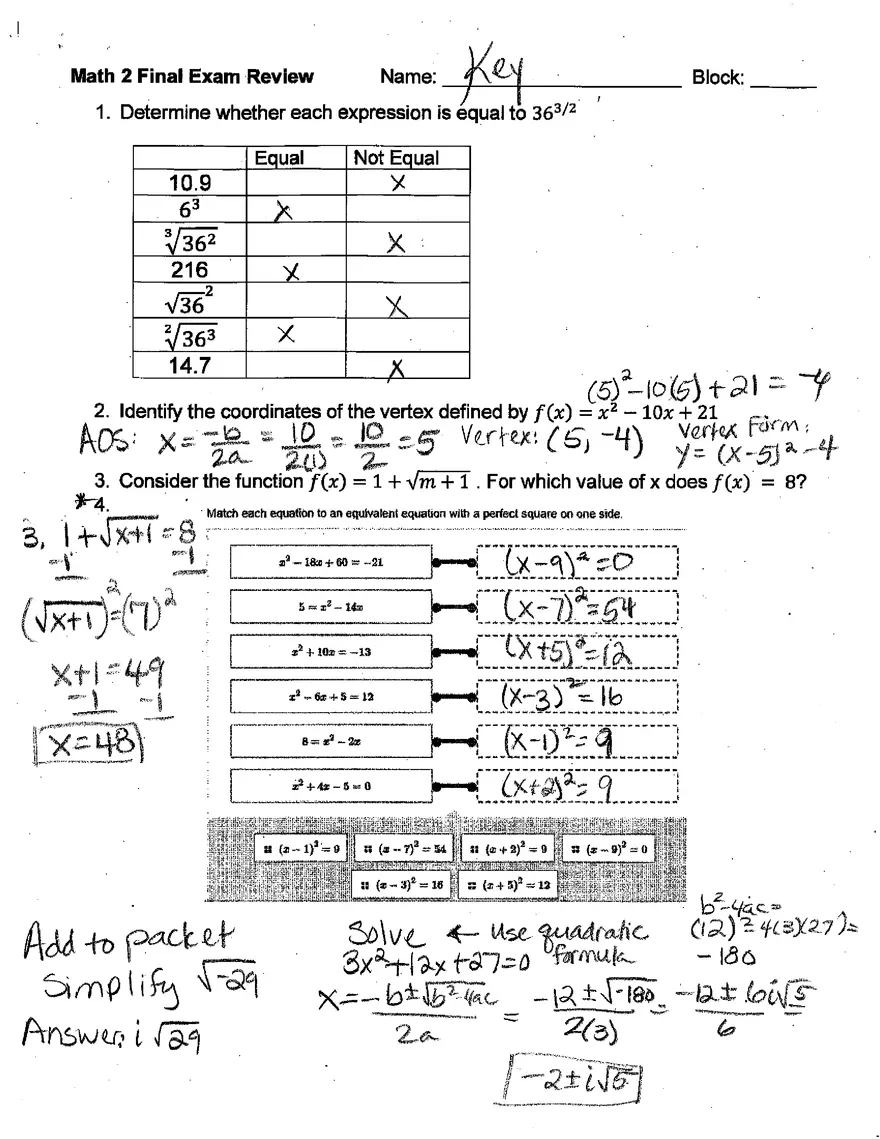 Math 2 Final Exam Review Name: Key Block:
1. Determine whether each expression is equal to 36^{3/2}
Equal Not Equal
10.9 X
6³ X
∛36² X
216 X
√36² X
²√36³ X
14.7 X
(5)²-10(5)+21 = -4
2. Identify the coordinates of the vertex defined by f(x) = x² − 10x + 21
AOS: x = -b/2a = 10/2(1) = 10/2 = 5 Vertex: (5, -4) Vertex Form:
y = (x-5)² -4
3. Consider the function f(x) = 1 + √m + 1 . For which value of x does f(x) = 8?
*4. Match each equation to an equivalent equation with a perfect square on one side.
3, 1+√x+1 = 8
-1 -1
(√x+1)² = (7)²
x+1 = 49
-1 -1
x=48
x² − 18x + 60 = −21 (x-9)² = 0
5 = x² − 14x (x-7)² = 54
x² + 10x = −13 (x+5)² = 12
x² − 6x + 5 = 12 (x-3)² = 16
8 = x² − 2x (x-1)² = 9
x² + 4x − 5 = 0 (x+2)² = 9
(x − 1)² = 9 (x − 7)² = 54 (x + 2)² = 9 (x − 9)² = 0
(x − 3)² = 16 (x + 5)² = 12
Add to packet
Simplify √-29
Answer: i √29
Solve ← Use quadratic formula
3x²+12x+27=0
b²-4ac =
(12)² - 4(3)(27) =
-180
x = -b±√b²-4ac / 2a = -12 ± √-180 / 2(3) = -12 ± 6i√5 / 6
-2±i√5